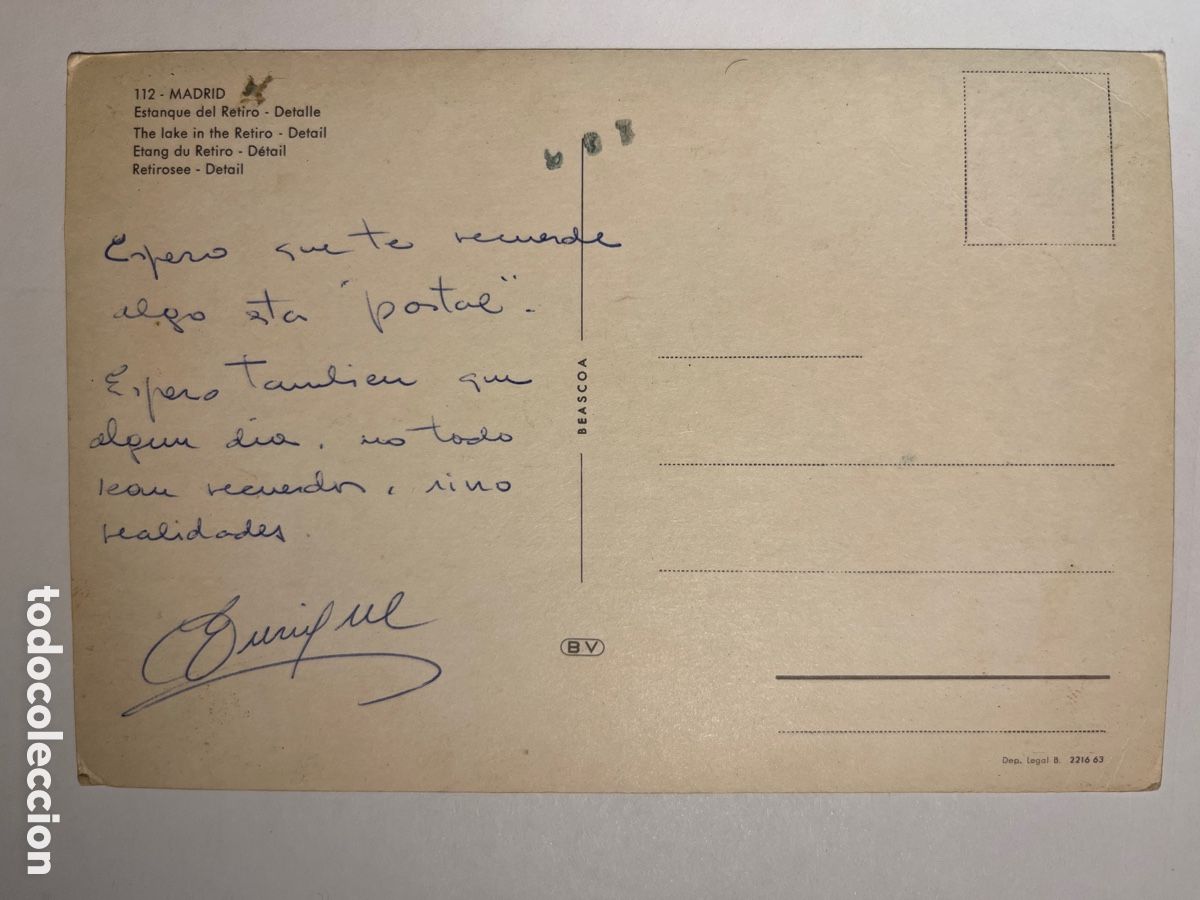 112 - MADRID
Estanque del Retiro - Detalle
The lake in the Retiro - Detail
Etang du Retiro - Détail
Retirosee - Detail
Espero que te recuerde
algo esta "postal".
Espero tambien que
algun dia, no todo
sean recuerdos, sino
realidades.
Enrique
BEASCOA
BV
Dep. Legal B. 2216 63
todocoleccion